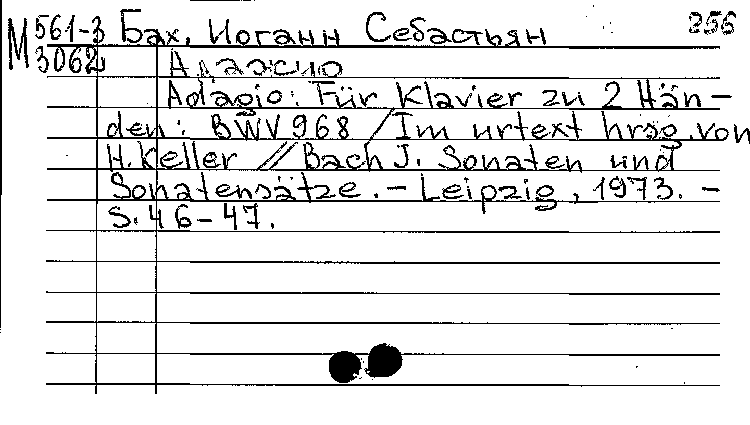 М 561-3 Бах, Иоганн Себастьян 256
3062 Адажио
Adagio: Für Klavier zu 2 Hän-
den: BWV 968 / Im urtext hrsg. von
H. Keller // Bach J. Sonaten und
Sonatensätze. - Leipzig, 1973. -
S. 46-47.